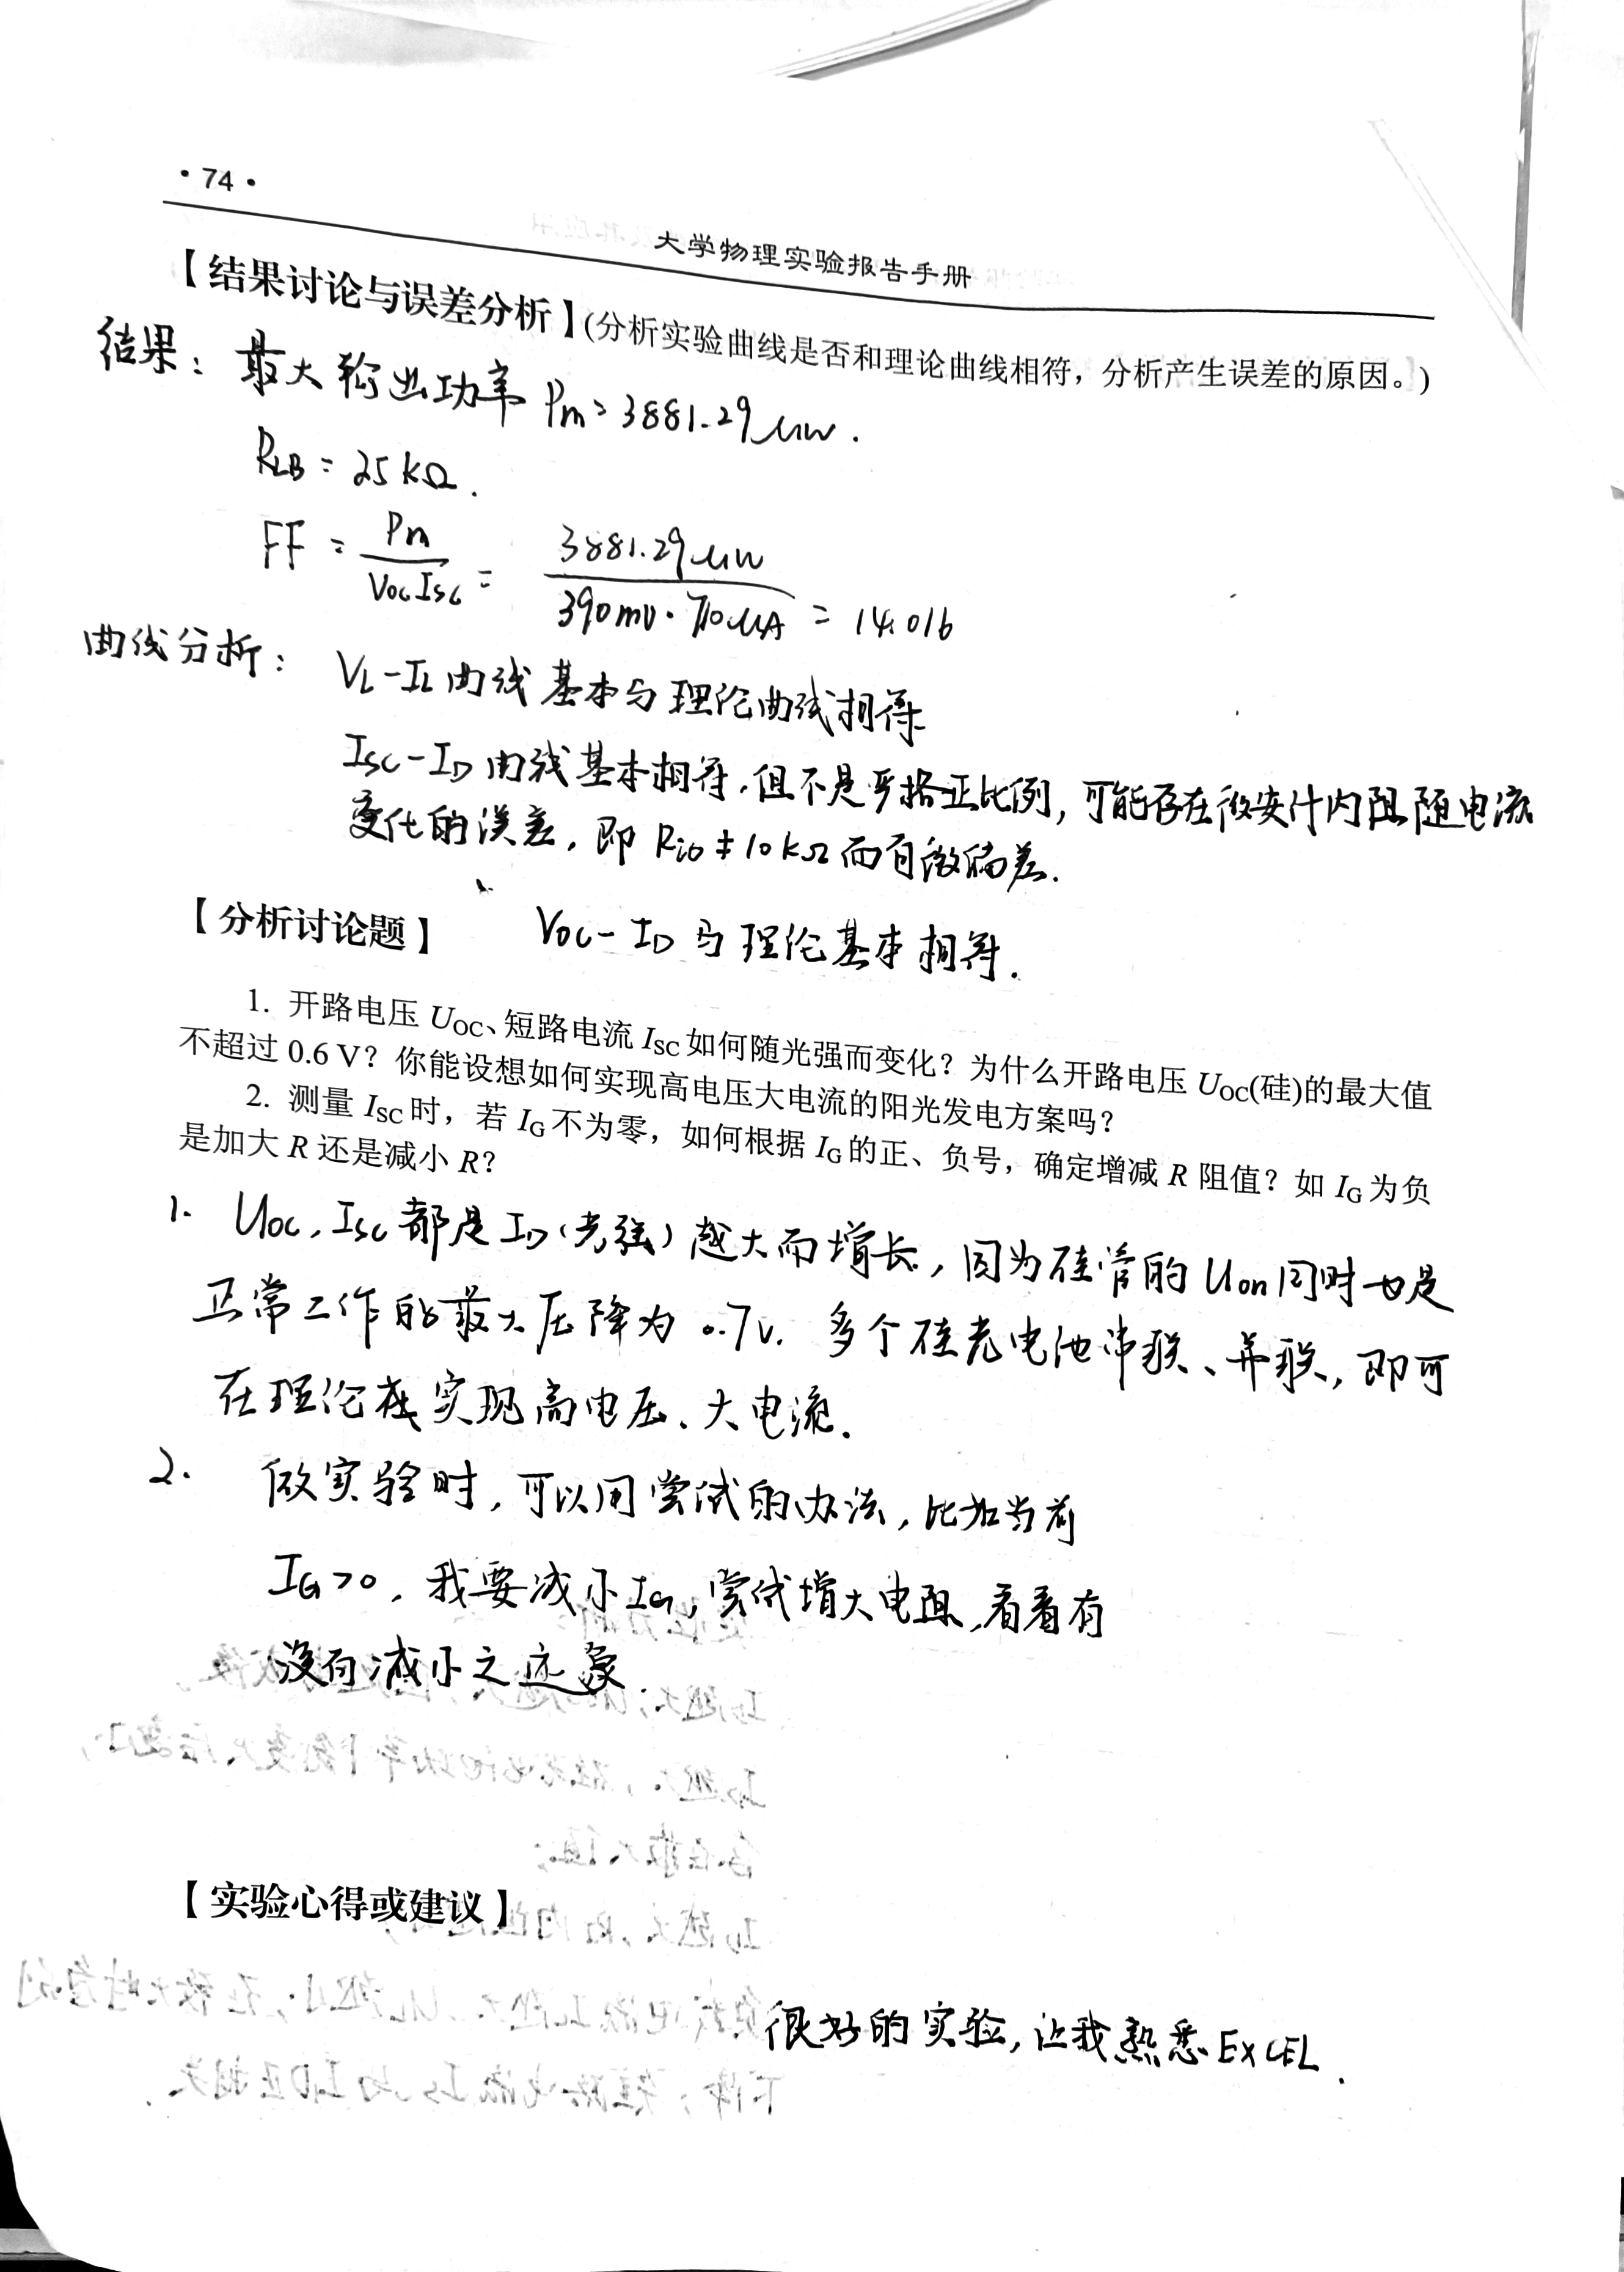 · 74 ·
大学物理实验报告手册
【结果讨论与误差分析】(分析实验曲线是否和理论曲线相符，分析产生误差的原因。)
结果：最大输出功率 Pm = 3881.29 μW.
RLB = 25 kΩ.
FF = Pm / Voc Isc = 3881.29 μW / 390mV · 710μA = 14.016
曲线分析：VL-IL曲线基本与理论曲线相符
Isc-ID曲线基本相符，但不是严格正比例，可能存在微安计内阻随电流
变化的误差，即 Ri0 ≠ 10 kΩ 而有微偏差.
【分析讨论题】 Voc-ID与理论基本相符.
1. 开路电压 UOC、短路电流 ISC 如何随光强而变化？为什么开路电压 UOC(硅)的最大值
不超过 0.6 V？你能设想如何实现高电压大电流的阳光发电方案吗？
2. 测量 ISC 时，若 IG 不为零，如何根据 IG 的正、负号，确定增减 R 阻值？如 IG 为负
是加大 R 还是减小 R？
1. Uoc，Isc都是ID（光强）越大而增长，因为硅管的Uon同时也是
正常工作的最大压降为 0.7V. 多个硅光电池串联、并联，即可
在理论上实现高电压、大电流.
2. 做实验时，可以用尝试的办法，比如当前
IG>0，我要减小IG，尝试增大电阻，看看有
没有减小之迹象.
【实验心得或建议】
很好的实验，让我熟悉EXCEL.